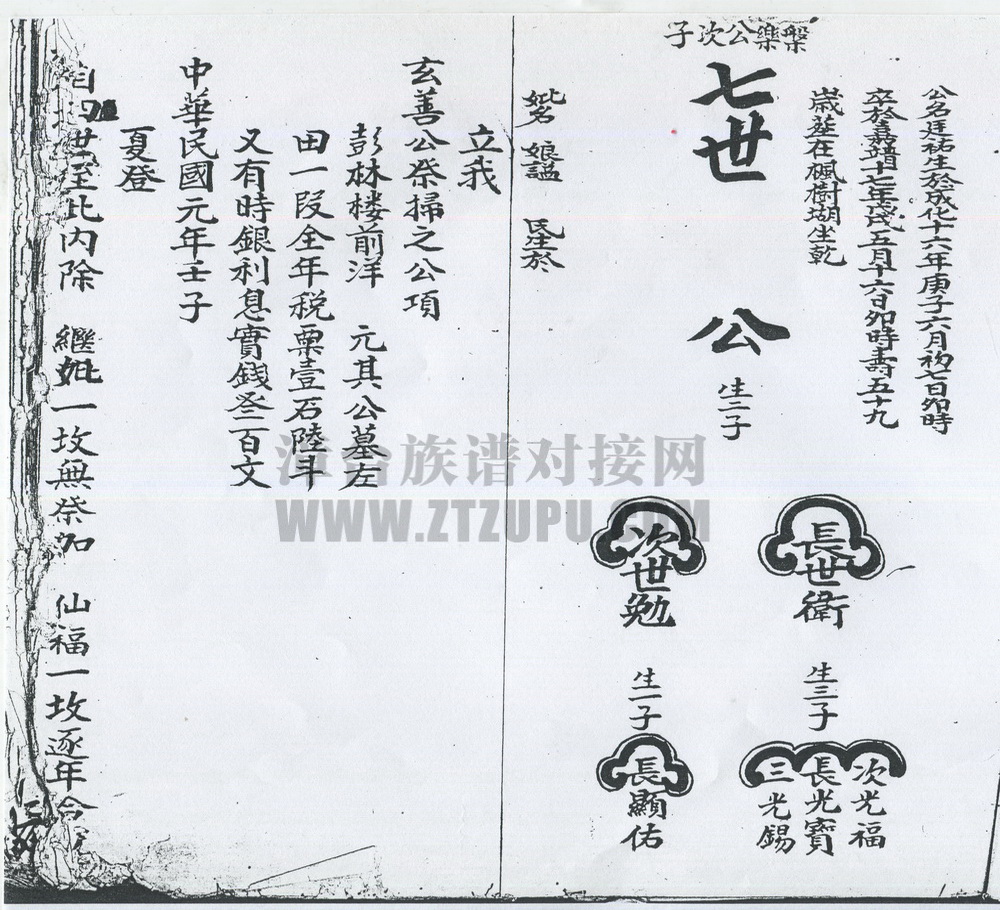 槃樂公次子
公名廷祐生於成化十六年庚子六月初七日卯時
卒於嘉靖十七年戊戌五月十六日卯時壽五十九
歲葬在楓樹湖坐乾
七世公
生二子
長世衛
次世勉
生三子
次光福
長光寶
三光錫
生一子
長顯佑
妣名 娘謚 氏生於
立我
玄善公祭掃之公項
彭林樓前洋 元其公墓左
田一段全年稅粟壹石陸斗
又有時銀利息實錢叁百文
中華民國元年壬子
夏登
世至此內除 繼妣一坟無祭加 仙福一坟逐年合
漳台族谱对接网
WWW.ZTZUPU.COM